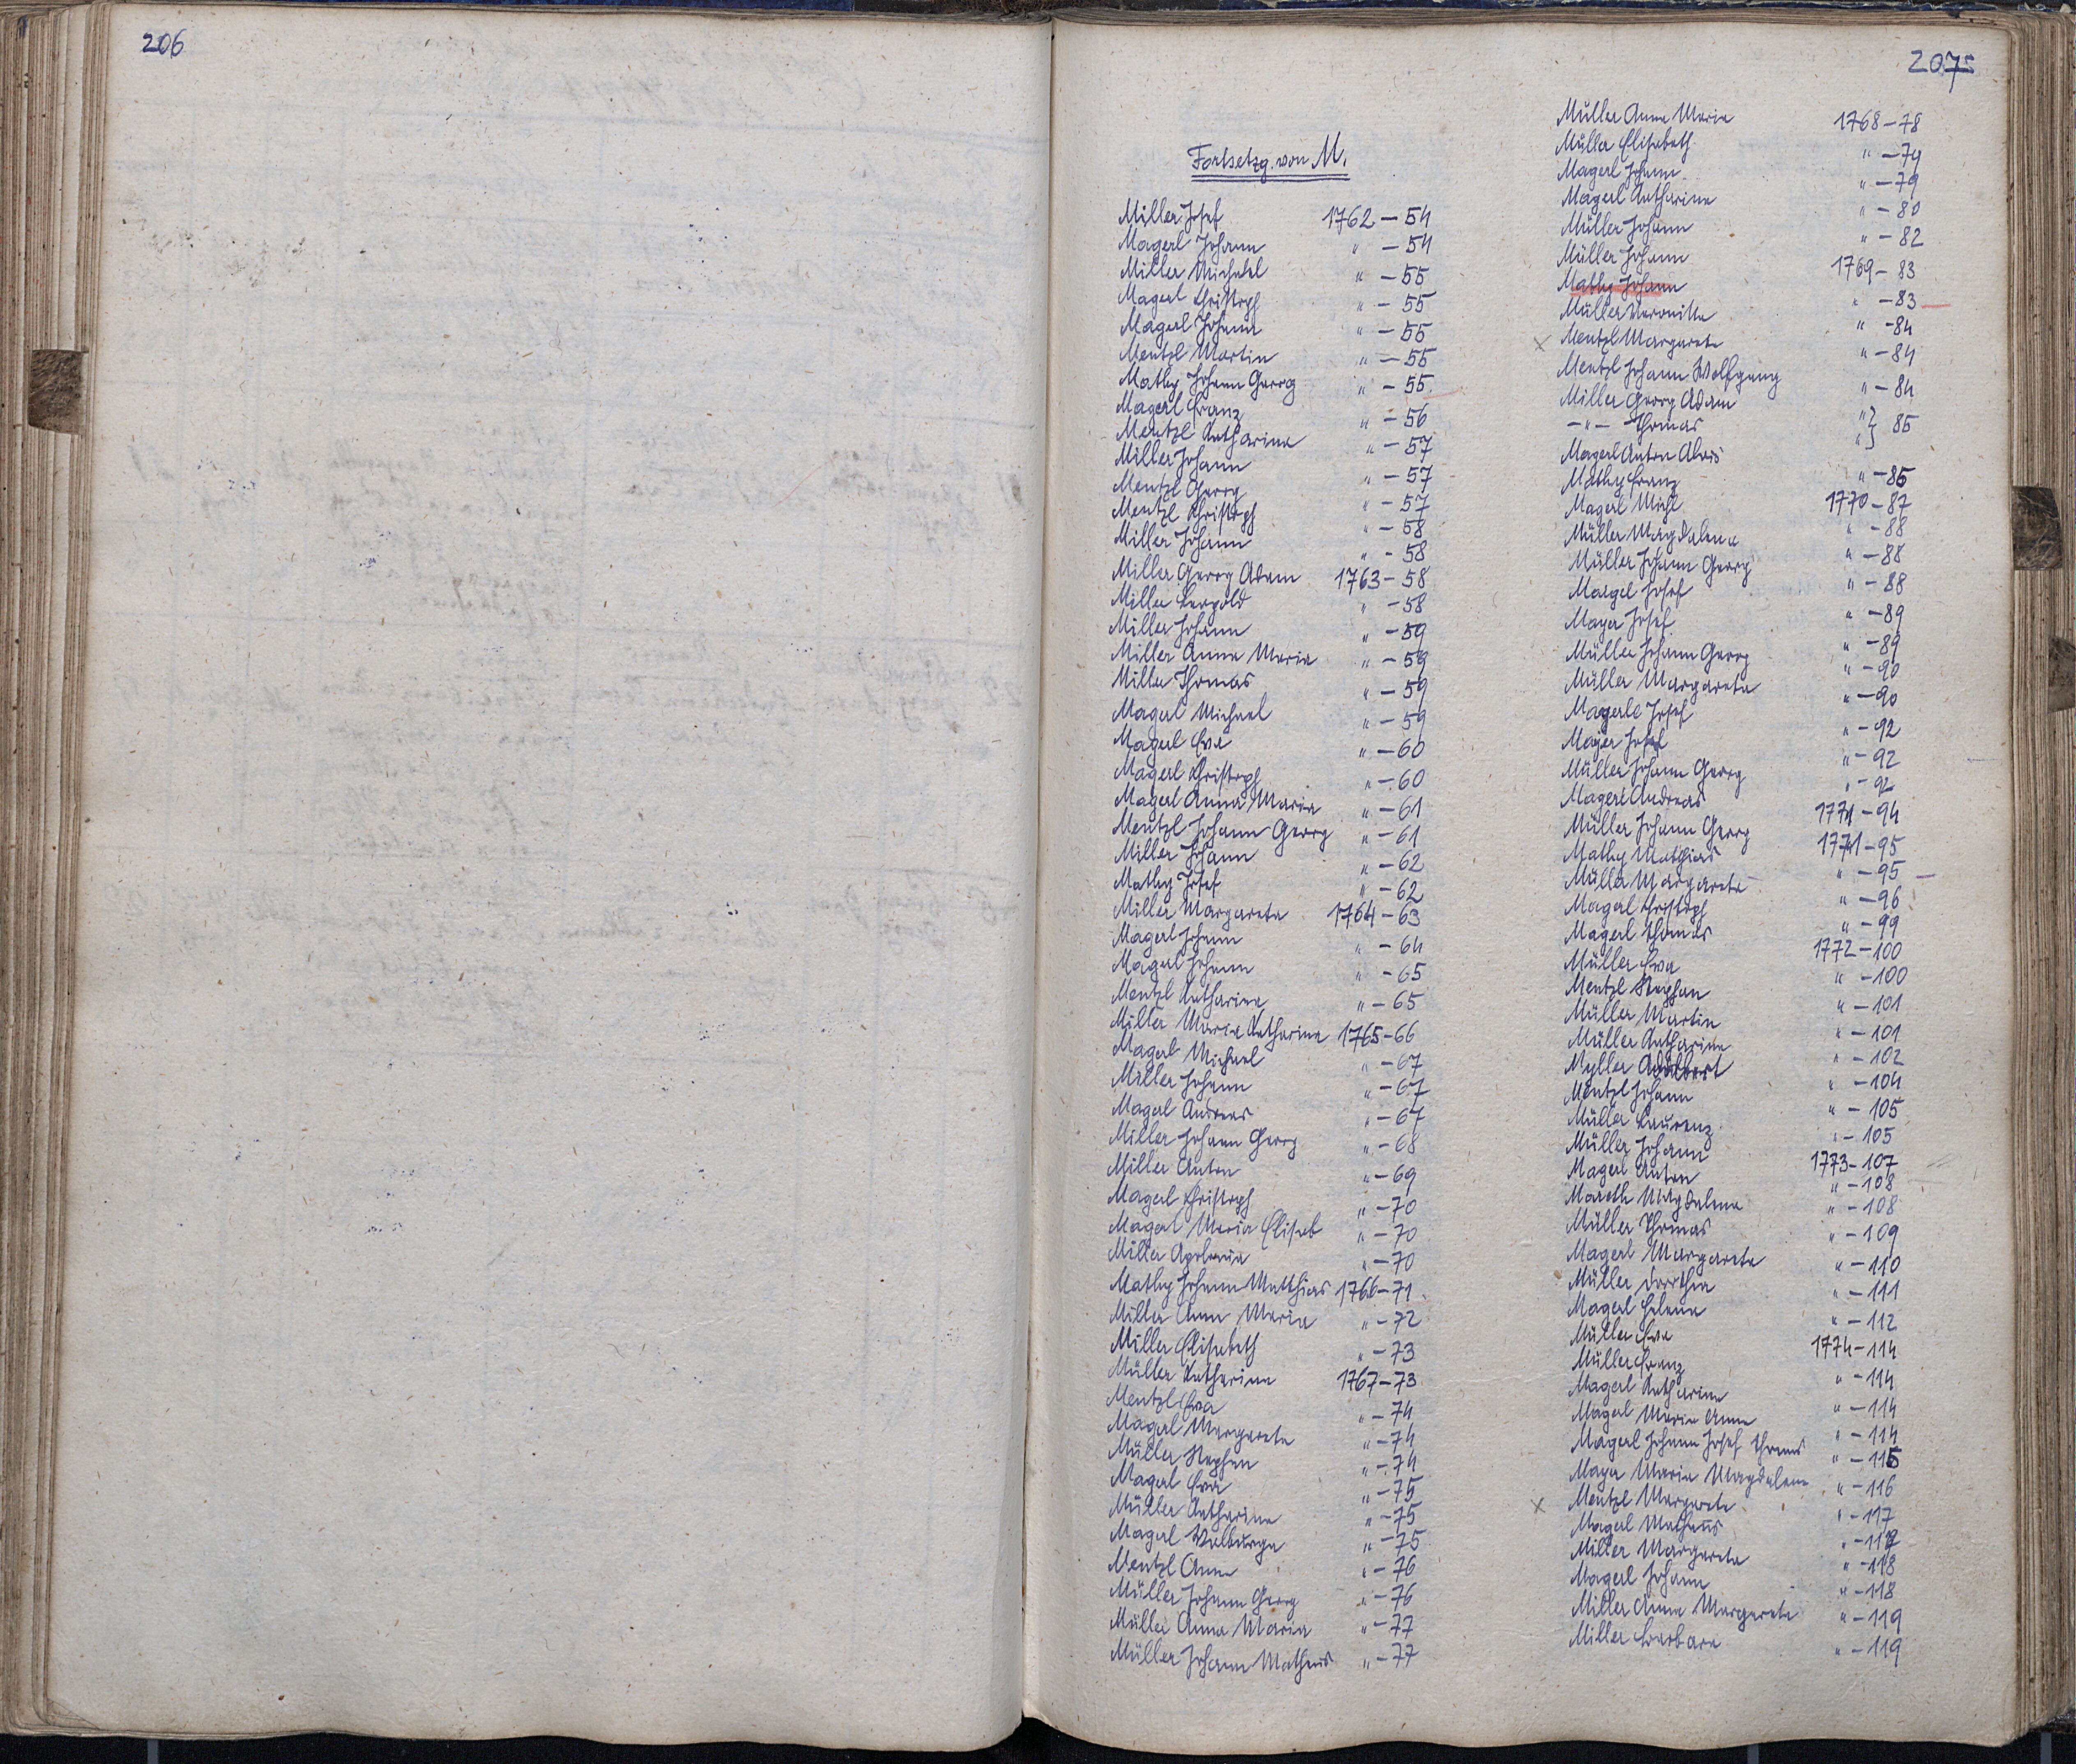 206
2075
Fortsetzg. von M.
Miller Josef 1762 – 54
Magerl Johann " – 54
Miller Michael " – 55
Magerl Christoph " – 55
Magerl Johann " – 55
Mentzl Martin " – 55
Mathy Johann Georg " – 55
Magerl Franz " – 56
Mentzl Katharina " – 57
Miller Johann " – 57
Mentzl Georg " – 57
Mentzl Christoph " – 58
Miller Johann " – 58
Miller Georg Adam 1763 – 58
Miller Leopold " – 58
Miller Johann " – 59
Miller Anna Maria " – 59
Miller Thomas " – 59
Magerl Michael " – 59
Magerl Eva " – 60
Magerl Christoph " – 60
Magerl Anna Maria " – 61
Mentzl Johann Georg " – 61
Miller Johann " – 62
Mathy Josef " – 62
Miller Margareta 1764 – 63
Magerl Johann " – 64
Magerl Johann " – 65
Mentzl Katharina " – 65
Miller Maria Katharina 1765 – 66
Magerl Michael " – 67
Miller Johann " – 67
Magerl Andreas " – 67
Miller Johann Georg " – 68
Miller Anton " – 69
Magerl Christoph " – 70
Magerl Maria Elisab " – 70
Miller Apolonia " – 70
Mathy Johann Matthias 1766 – 71
Miller Anna Maria " – 72
Miller Elisabeth " – 73
Müller Katharina 1767 – 73
Mentzl Eva " – 74
Magerl Margareta " – 74
Müller Stephan " – 74
Magerl Eva " – 75
Müller Katharina " – 75
Magerl Walburga " – 75
Mentzl Anna " – 76
Müller Johann Georg " – 76
Müller Anna Maria " – 77
Müller Johann Matheus " – 77
Müller Anna Maria 1768 – 78
Müller Elisabeth " – 79
Magerl Johann " – 79
Magerl Katharina " – 80
Müller Johann " – 82
Müller Johann 1769 – 83
Mathy Johann " – 83
Müller Veronika " – 84
x Mentzl Margareta " – 84
Mentzl Johann Wolfgang " – 84
Miller Georg Adam " } 85
– " – Thomas "
Magerl Anton Alois " – 85
Mathy Franz 1770 – 87
Magerl Michl " – 88
Müller Magdalena " – 88
Müller Johann Georg " – 88
Margel Josef " – 89
Mayer Josef " – 89
Müller Johann Georg " – 90
Müller Margareta " – 90
Magerle Josef " – 92
Majer Josef " – 92
Müller Johann Georg " – 92
Magerl Andreas 1771 – 94
Müller Johann Georg 1771 – 95
Mathy Mathias " – 95
Müller Margareta " – 96
Magerl Christoph " – 99
Magerl Thomas 1772 – 100
Müller Eva " – 100
Mentzl Stephan " – 101
Müller Martin " – 101
Müller Katharina " – 102
Myller Adalbert " – 104
Mentzl Johann " – 105
Müller Laurenz " – 105
Müller Johann 1773 – 107
Magerl Anton " – 108
Mareth Magdalena " – 108
Müller Thomas " – 109
Magerl Margareta " – 110
Müller Dorothea " – 111
Magerl Helena " – 112
Müller Eva 1774 – 114
Müller Franz " – 114
Magerl Katharina " – 114
Magerl Maria Anna " – 114
Magerl Johann Josef Thomas " – 115
Mayer Maria Magdalena " – 116
x Mentzl Margareta " – 117
Magerl Matheus " – 117
Miller Margareta " – 118
Magerl Johann " – 118
Miller Anna Margareta " – 119
Miller Barbara " – 119